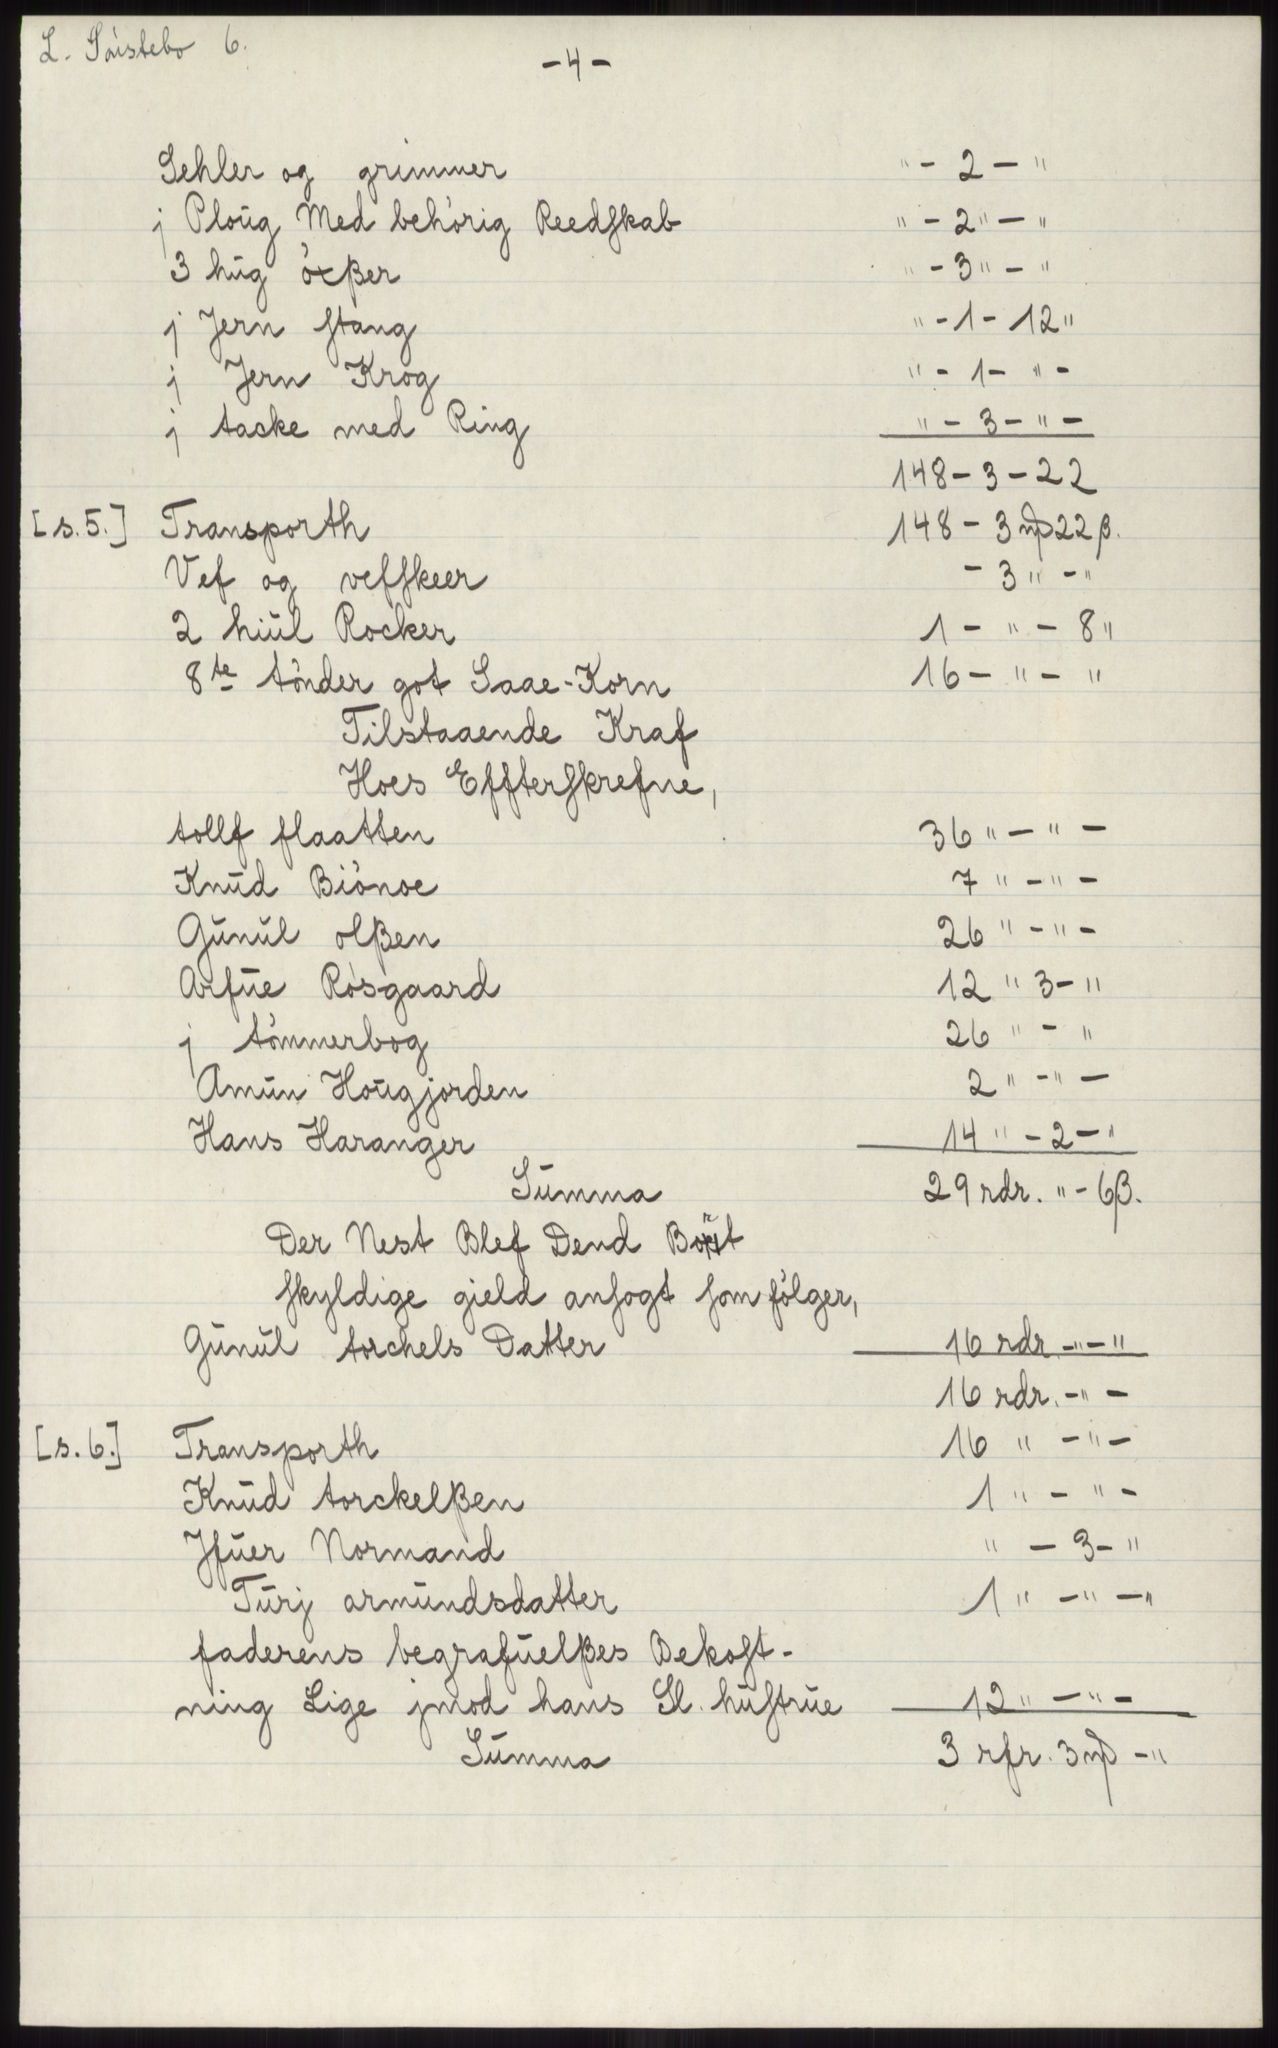 L. Söistebo 6.
-4-
Sehler og grimmer " - 2 - "
j Ploug Med behörig Reedskab " - 2 " - "
3 hug öxßer " - 3 " - "
j Jern stang " - 1 - 12 "
j Jern Krog " - 1 - " -
j tacke med Ring " - 3 - " -
148 - 3 - 22
[s.5.] Transporth 148 - 3 mþ 22 β.
Vef og vefskeer - 3 " - "
2 hiul Rocker 1 - " - 8 "
8te tönder got Saae-Korn 16 - " - "
Tilstaaende Kraf
Hoes Effterskrefne,
tollf flaatten 36 " - " -
Knud Biönoe 7 " - " -
Gunul olßen 26 " - " -
Arfue Rösgaard 12 " 3 - "
j tömmerbog 26 " - "
Amun Hougjorden 2 " - " -
Hans Haranger 14 " - 2 - "
Summa 29 rdr. " - 6 β.
Der Nest Blef Dend
skyldige gield ansogt som fölger,
Gunul torchels Datter 16 rdr. - " - "
16 rdr. - " -
[s.6.] Transporth 16 " - " -
Knud torckelßen 1 " - " -
Jfuer Normand " - 3 - "
Turj armundsdatter 1 " - " - "
faderens begrafuelßes Bekost-
ning Lige jmod hans Sl. hustrue 12 " - " -
Summa 3 rfr. 3 mþ - "